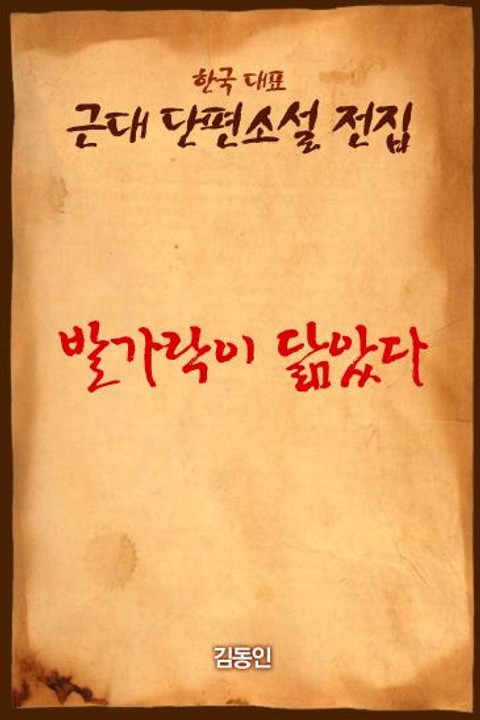 한국 대표
근대 단편소설 전집
발가락이 닮았다
김동인